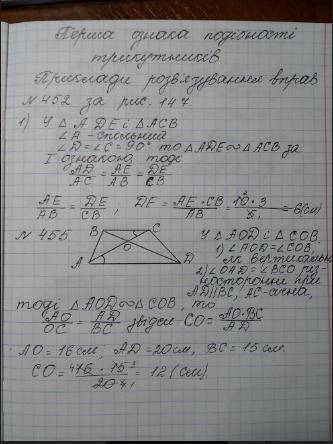 Перша ознака подібності
трикутників
Приклади розв'язування вправ
№452 за рис. 147
1) У △ADE і △ACB
∠A - спільний
∠D = ∠C = 90° то △ADE ∾ △ACB за
I ознакою тоді
AD/AC = AE/AB = DE/CB
AE/AB = DE/CB, DE = AE·CB/AB = 10·3/5 = 6(см)
№455
B C
O
A D
У △AOD і △COB
1) ∠AOD = ∠COB,
як вертикальні
2) ∠OAD = ∠BCO різ-
носторонні при
AD∥BC, AC-січна,
то
тоді △AOD ∾ △COB,
AO/OC = AD/BC звідси CO = AO·BC/AD
AO = 16 см, AD = 20 см, BC = 15 см.
CO = 16·15/20 = 12 (см)